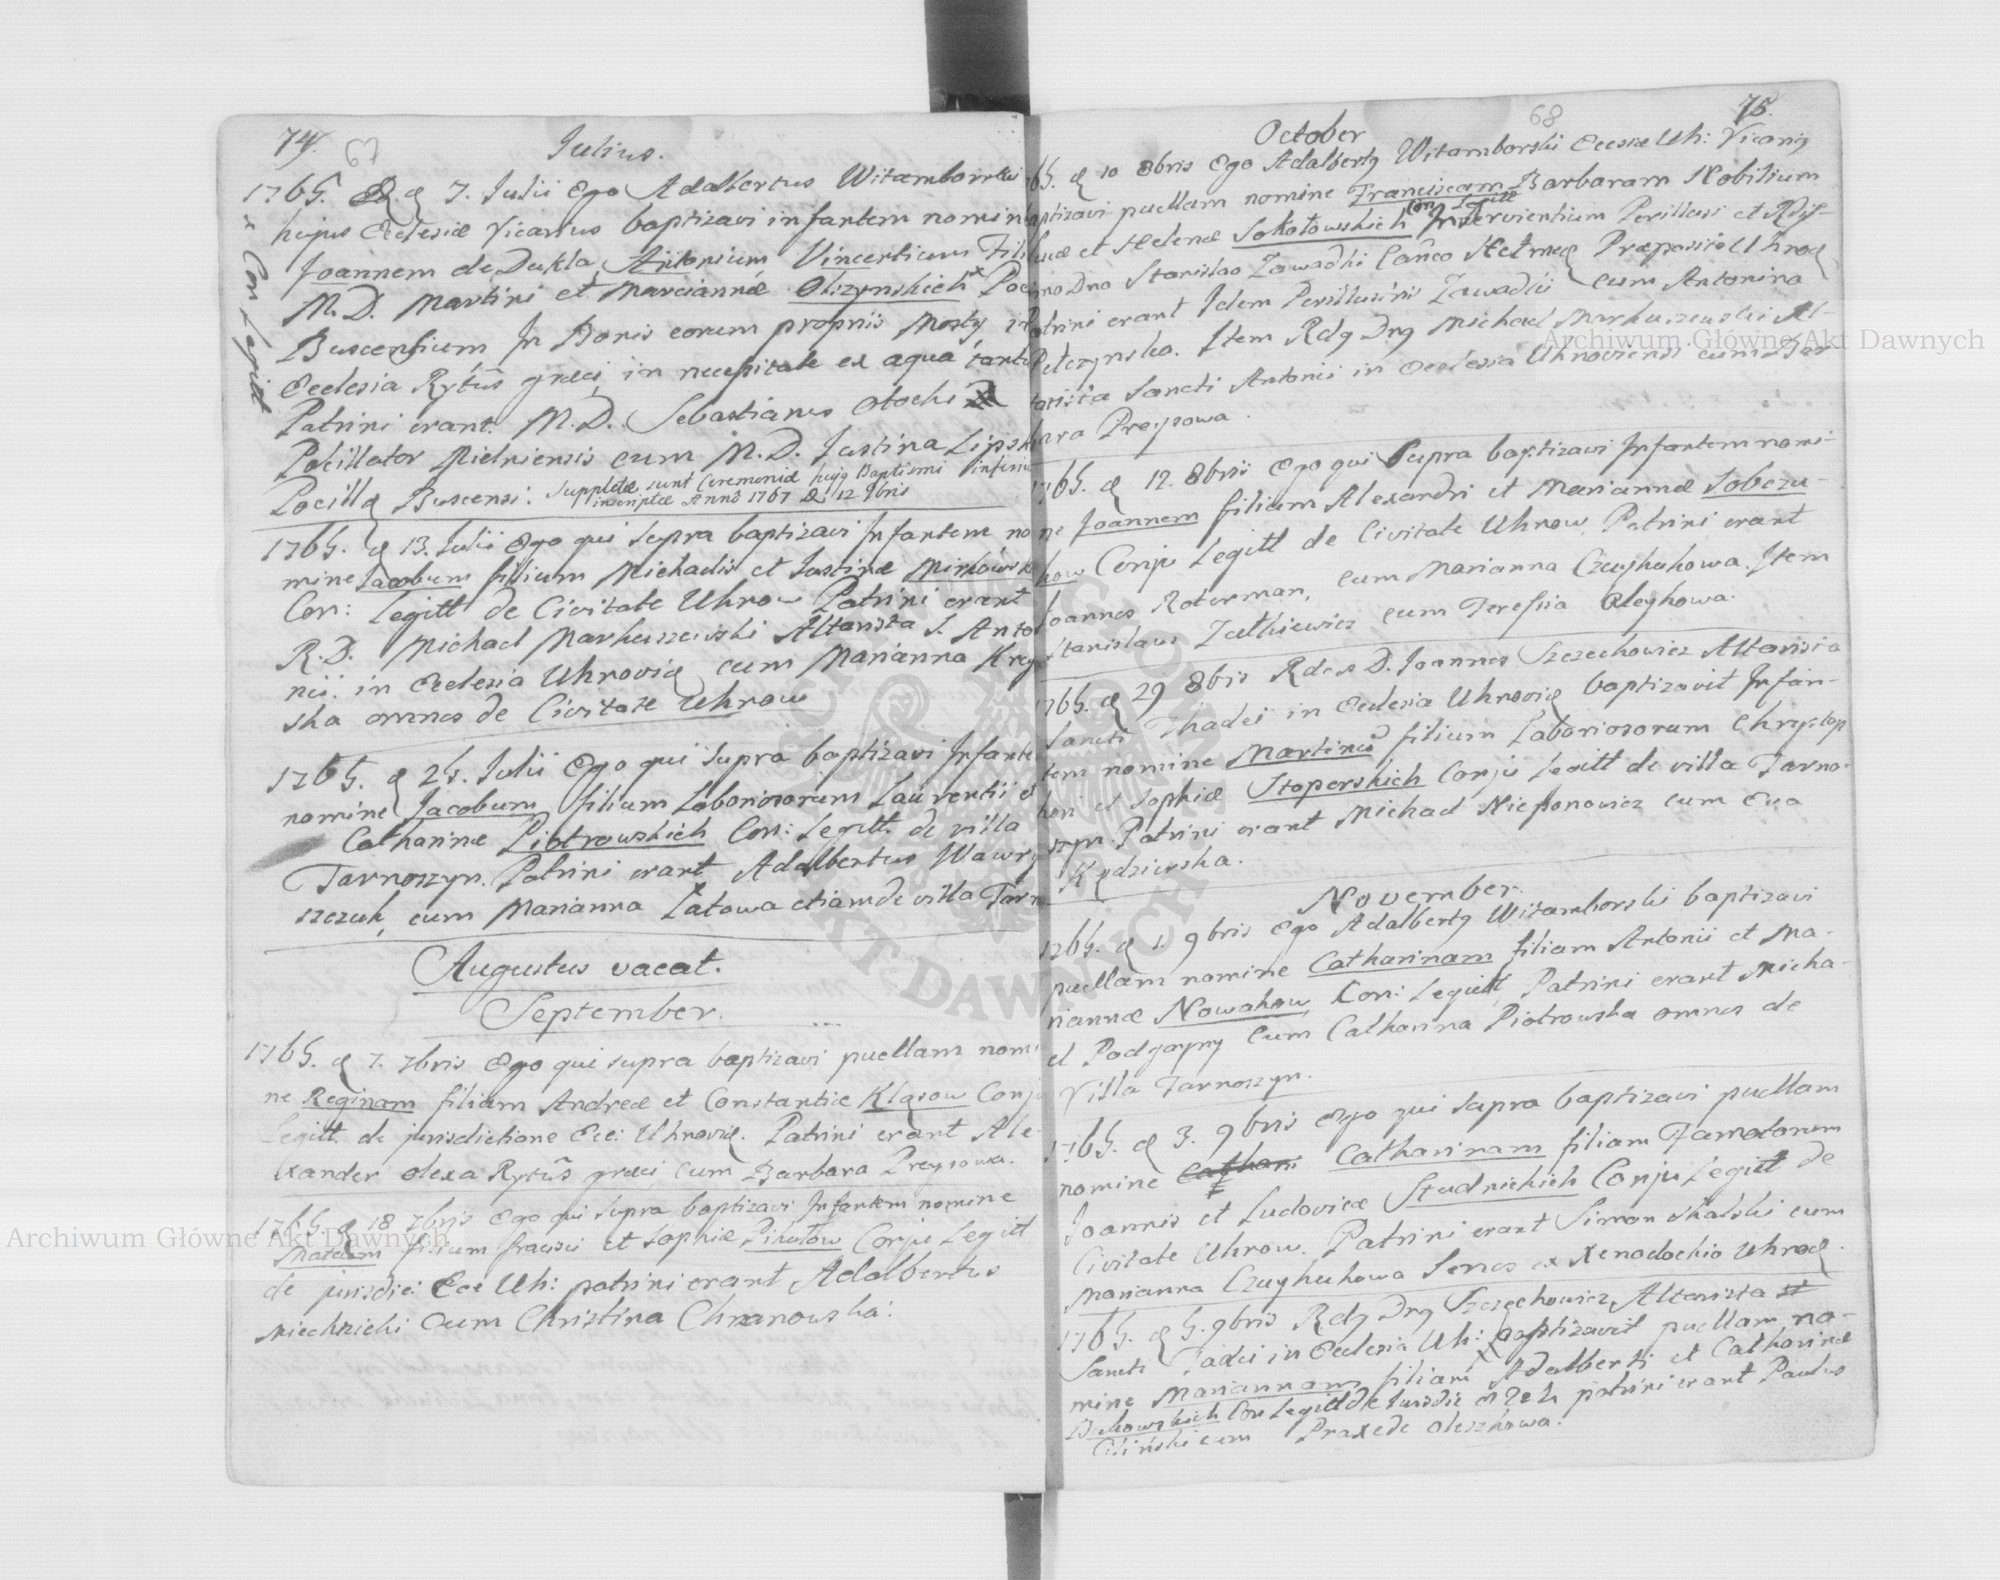 74.
67
Julius.
1765. D. 7. Julii Ego Adalbertus Witamborski
hujus Ecclesiæ Vicarius baptizavi infantem nomine
Joannem de Dukla, Antonium Vincentium Fili
M.D. Martini et Mariannæ Olszynskich x Poci
Buscensium In Bonis eorum propriis Mosty in
Ecclesia Rytûs græci in necessitate ex aqua tantu
Patrini erant. M.D. Sebastianus Otocki
Pocillator Mielniensis cum M.D. Justina Lipsk
Pocillæ Buscensi. Suppletæ sunt Ceremoniæ hujq Baptismi inferiu
inscriptæ Anno 1767 D. 12 9bris
x Con Legitt
1765. d 13. Julii Ego qui supra baptizavi Infantem no
mine Jacobum filium Michaelis et Justinæ Mirkowsk
Con: Legitt de Civitate Uhnow Patrini erant
R.D. Michael Markuszewski Altarista S. Anto
nii in Ecclesia Uhnoviæ cum Marianna Kry
ska omnes de Civitate Uhnow
1765. d 25. Julii Ego qui supra baptizavi Infante
nomine Jacobum filium Laboriosorum Laurentii et
Catharinæ Piotrowskich Con: Legitt. de villa
Tarnoszyn. Patrini erant Adalbertus Wawry
szczuk, cum Marianna Latowa etiam de villa Tarn
Augustus vacat.
September.
1765. d 7. 7bris Ego qui supra baptizavi puellam nomi
ne Reginam filiam Andreæ et Constantiæ Kląsow Conju
Legitt. de jurisdictione Ecc: Uhnoviæ. Patrini erant Ale-
xander Olexa Rytûs græci cum Barbara Preysowa.
1765. d 18 7bris Ego qui supra baptizavi Infantem nomine
Mateum filium et Sophiæ Pikulow Conju Legitt
de jurisdic: Ecc Uh: patrini erant Adalbertus
Miechnicki Cum Christina Chranowska.
68
75.
October
65. d 10 8bris Ego Adalbertq Witamborski Ecclsiæ Uh: Vicariq
aptizavi puellam nomine Franciscam Barbaram Nobilium
et Helenæ Sokołowskich Con Legitt Inservientium Perillusi et
mo Dno Stanislao Zawadzki Canco Præposito Uhnoæ
atrini erant Idem Perillusmis Zawadzki cum Antonina
Pełczynska. Item Rdq Dnq Michael Markuszewski Al-
tarista Sancti Antonii in Ecclesia Uhnoviensi cum Bar
bara Preysowa.
1765. d 12. 8bris Ego qui supra baptizavi Infantem nomi-
ne Joannem filium Alexandri et Mariannæ Sobczu-
kow Conju Legitt de Civitate Uhnow, Patrini erant
Joannes Roterman, cum Marianna Czuykukowa. Item
Stanislaus Zatkiewicz cum Teressia Oleykowa.
1765. d 29 8bris Rdus D. Joannes Szczechowicz Altarista
Sancti Thadei in Ecclesia Uhnoviæ baptizavit Infan-
tem nomine Martinu filium Laboriosorum Chrystop
hori et Sophiæ Stoperskich Conju Legitt de villa Tarno-
szyn. Patrini erant Michael Nieponowicz cum Eva
Kędzierska.
November.
1765. d 1. 9bris Ego Adalbertq Witamborski baptizavi
puellam nomine Catharinam filiam Antonii et Ma-
riannæ Nowakow Con: Legitt, Patrini erant Micha-
el Podgoyny Cum Catharina Piotrowska omnes de
Villa Tarnoszyn.
1765. d 3. 9bris Ego qui supra baptizavi puellam
nomine Cathari Catharinam filiam Famatorum
Joannis et Ludovicæ Studnickich Conju Legitt de
Civitate Uhnow. Patrini erant Simon Skalski cum
Marianna Czuykukowa Senes ex Xenodochio Uhnoæ.
1765. d 5. 9bris Rdq Dnq Szczechowicz Altarista
Sancti Tadei in Ecclesia Uh: baptizavit puellam no-
mine Mariannam filiam Adalberti et Catharinæ
Bukowskich Con Legitt de Jurisdic patrini erant Paulus
Cum Praxede Oleszkowa.
Archiwum Główne Akt Dawnych
Archiwum Główne Akt Dawnych